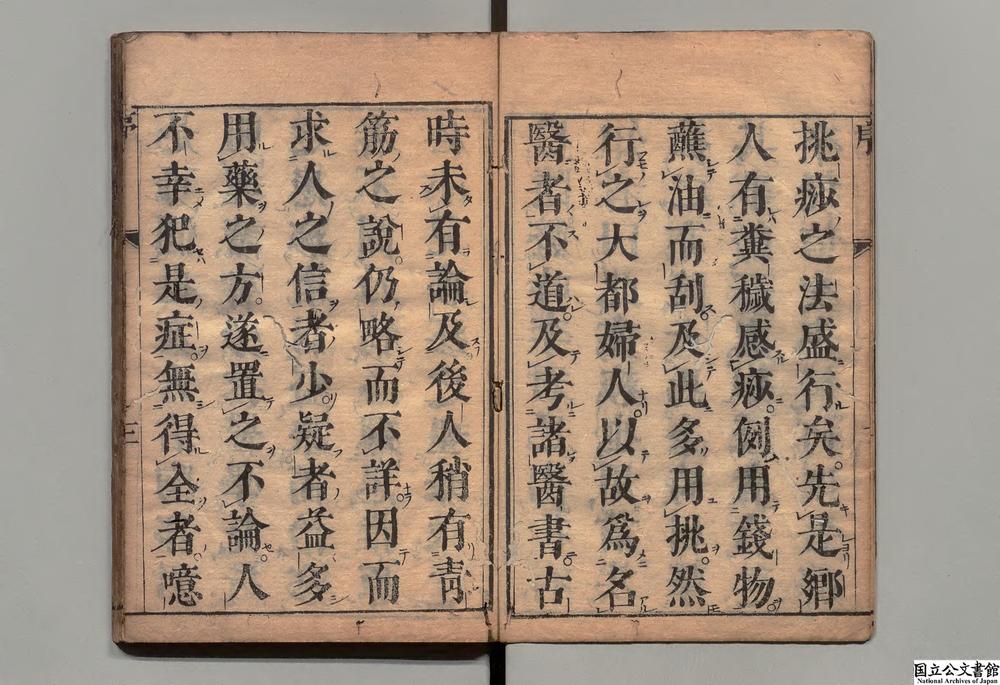 挑痧之法盛行矣先是鄉
人有糞穢感痧例用錢物
蘸油而刮及此多用挑然
行之大都婦人以故為名
醫者不道及考諸醫書古
時未有論及後人稍有青
筋之說仍略而不詳因而
求人之信者少疑者益多
用藥之方遂置之不論人
不幸犯是症無得全者噫
序
三
国立公文書館
National Archives of Japan